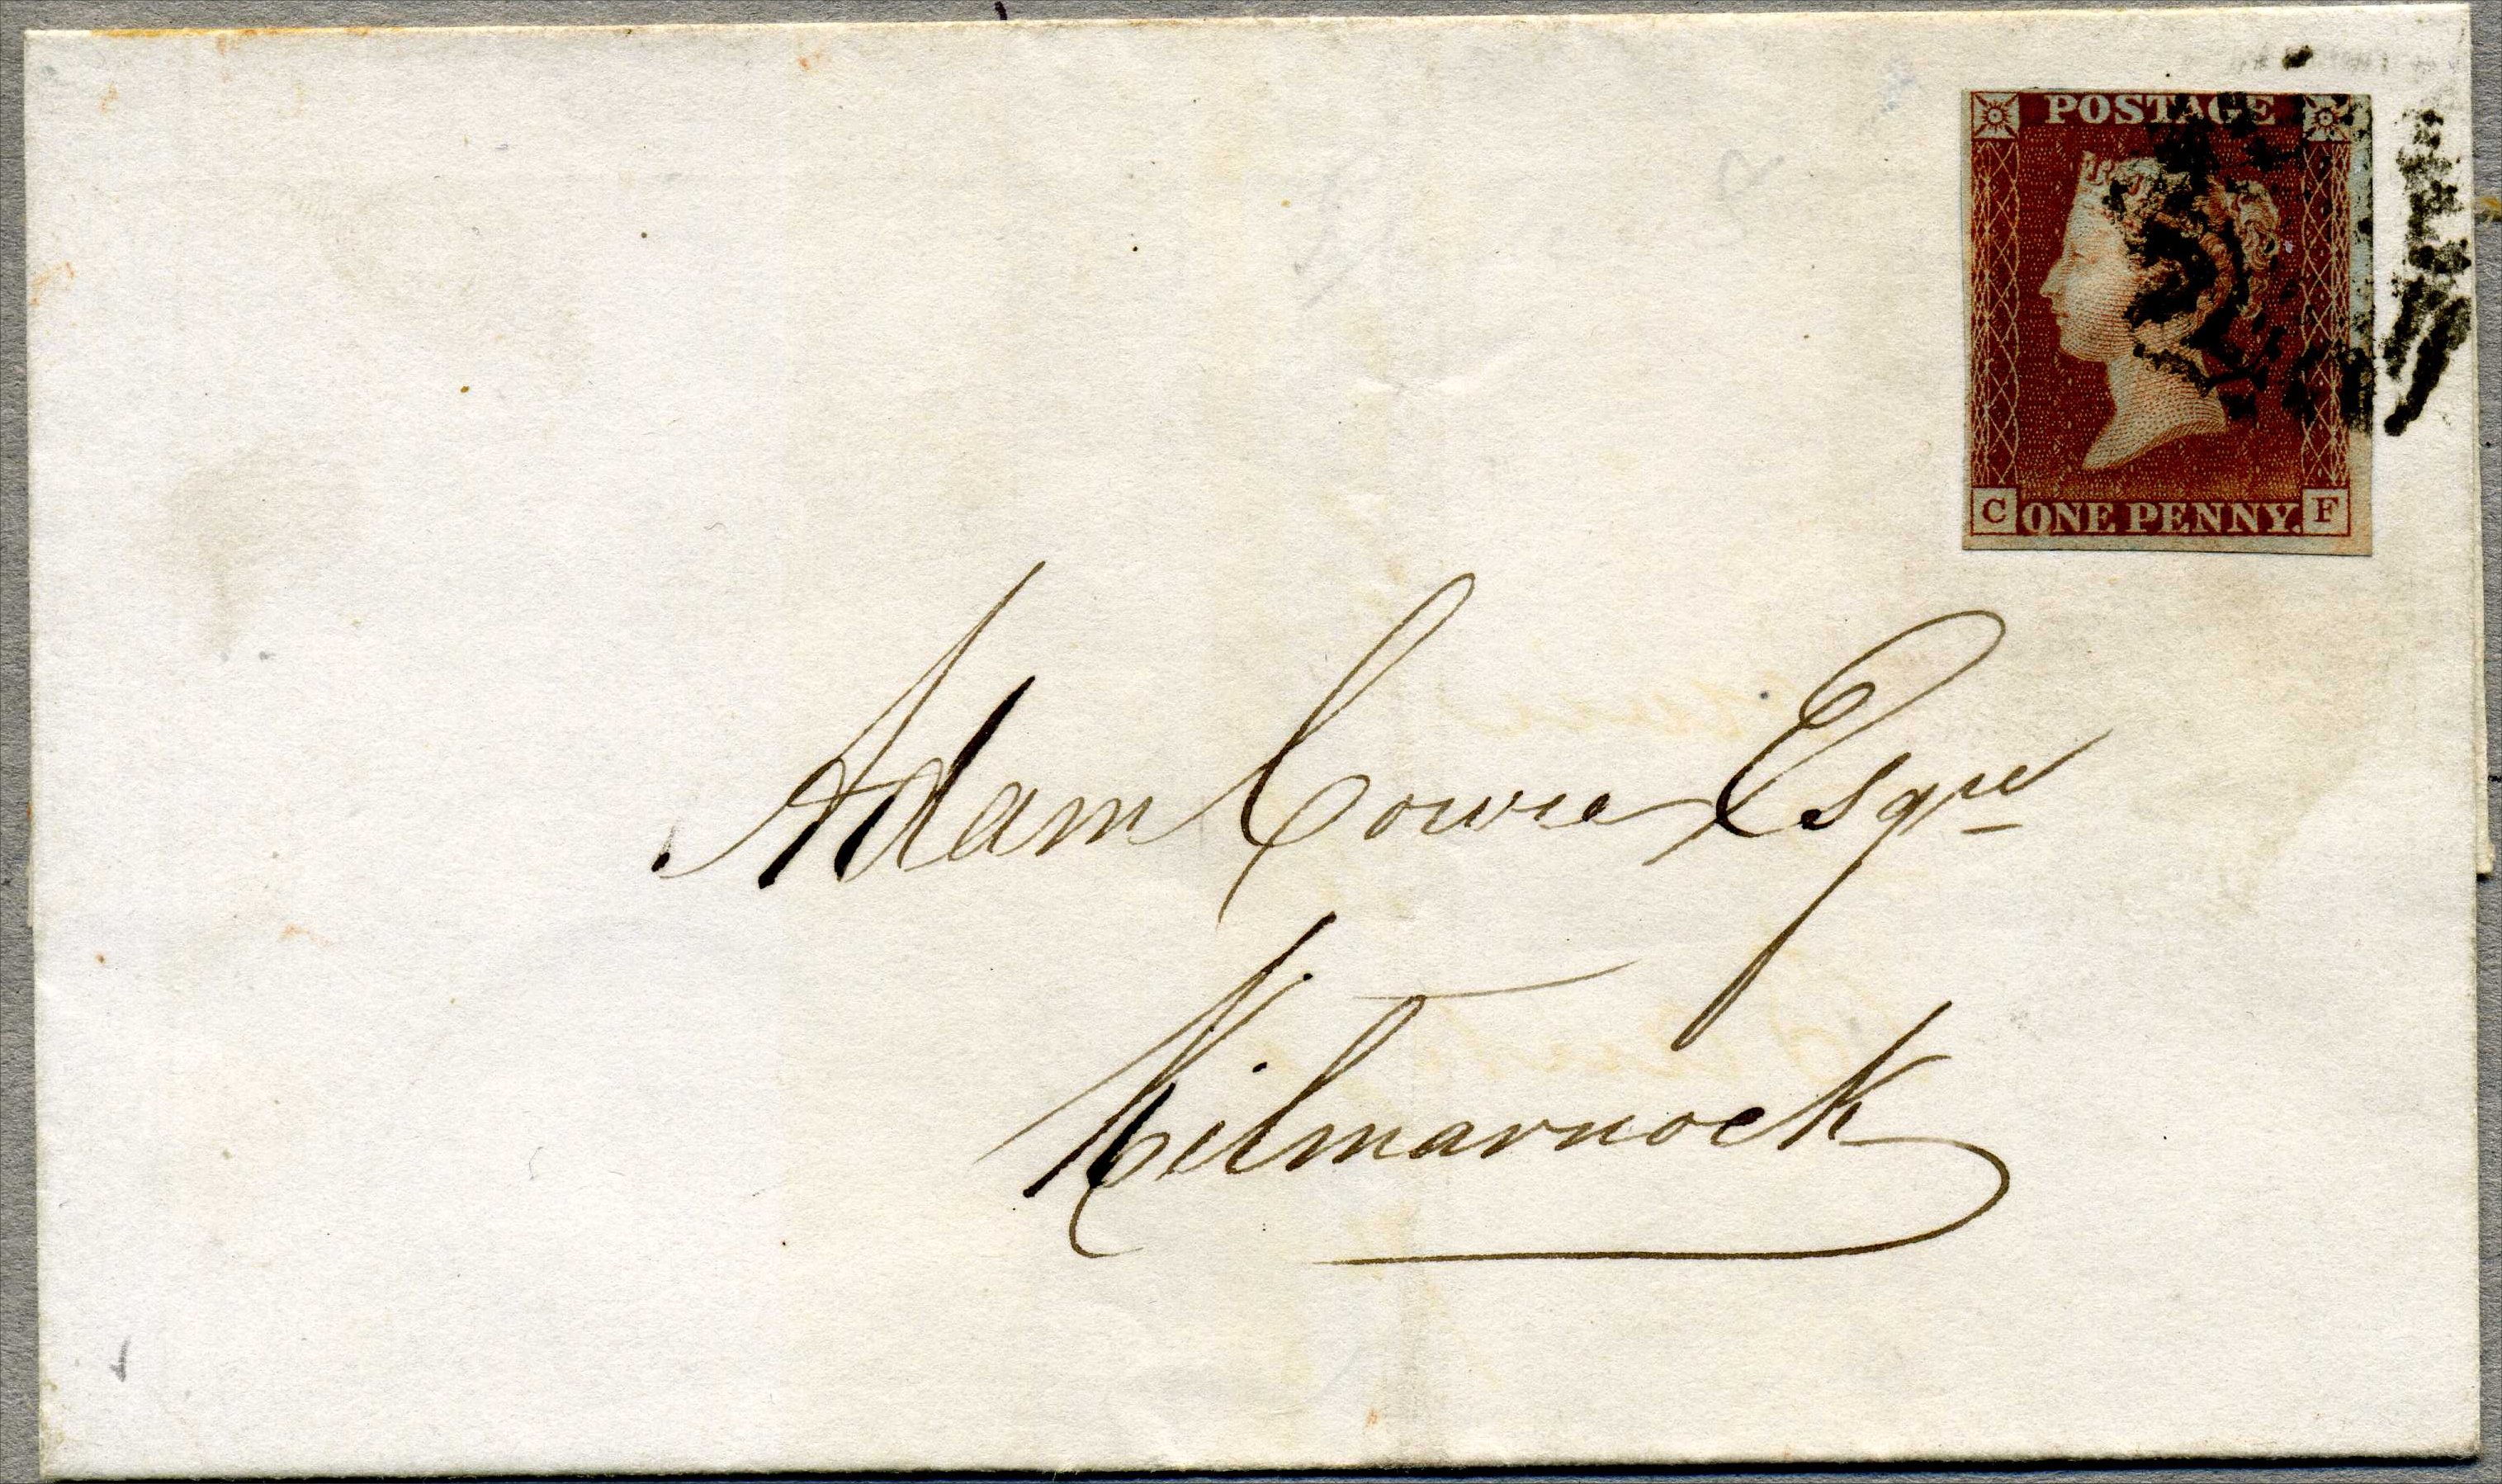 POSTAGE
C ONE PENNY. F
Adam Cowie Esqre
Kilmarnock